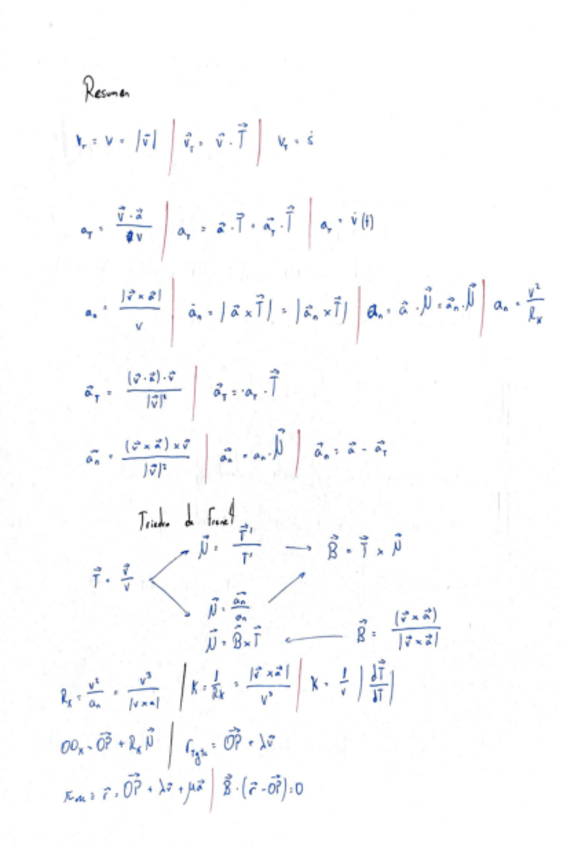 Resumen
v_T = v = |v⃗| | v⃗_T = v⃗ · T⃗ | v_T = ṡ
a_T = (v⃗ · a⃗)/v | a_T = a⃗ · T⃗ = a⃗_T · T⃗ | a_T = v̇(t)
a_n = |v⃗ × a⃗|/v | a_n = |a⃗ × T⃗| = |a⃗_n × T⃗| | a_n = a⃗ · N⃗ = a⃗_n · N⃗ | a_n = v²/R_K
a⃗_T = (v⃗ · a⃗) · v⃗/|v⃗|² | a⃗_T = a_T · T⃗
a⃗_n = (v⃗ × a⃗) × v⃗/|v⃗|² | a⃗_n = a_n · N⃗ | a⃗_n = a⃗ - a⃗_T
Triedro de Frenet
N⃗ = T⃗'/T' → B⃗ = T⃗ × N⃗
T⃗ = v⃗/v
N⃗ = a⃗_n/a_n
N⃗ = B⃗ × T⃗ ← B⃗ = (v⃗ × a⃗)/|v⃗ × a⃗|
R_K = v²/a_n = v³/|v × a| | K = 1/R_K = |v⃗ × a⃗|/v³ | K = 1/v |dT⃗/dT|
OO_K = OP⃗ + R_K N⃗ | r_Tgte = OP⃗ + λv⃗
π_osc = r⃗ = OP⃗ + λv⃗ + μa⃗ | B⃗ · (r⃗ - OP⃗) = 0